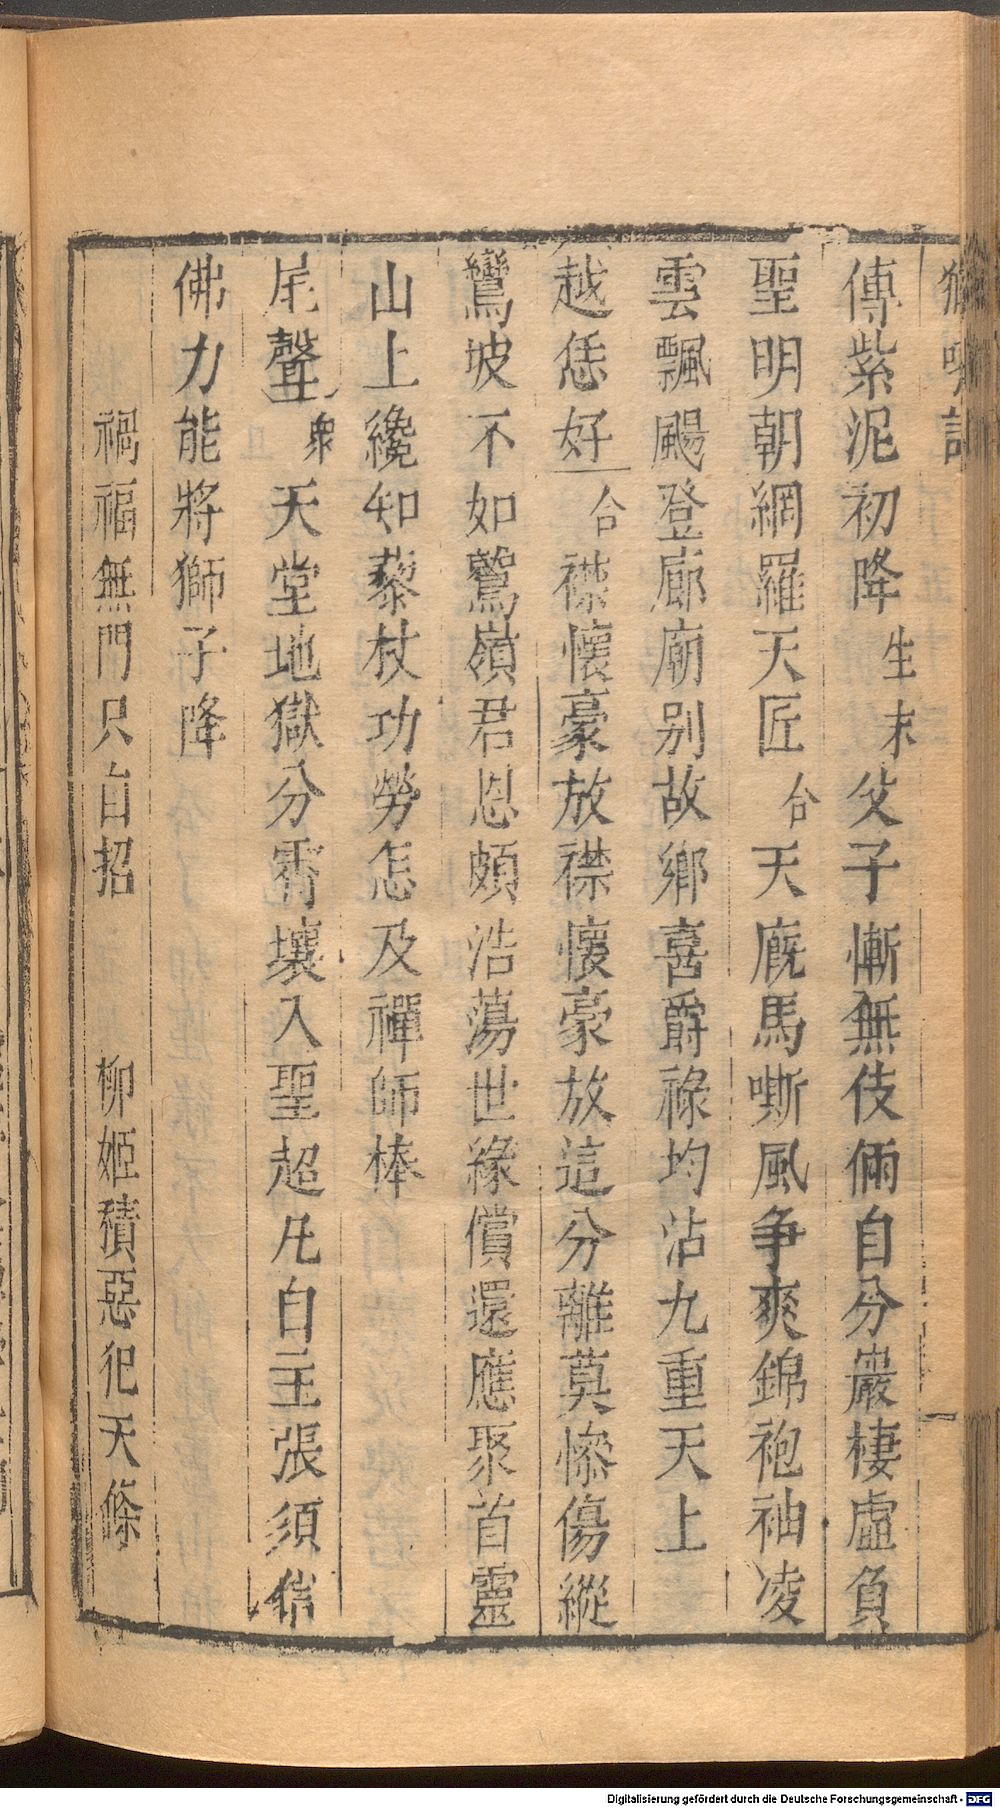 獅吼記
傳紫泥初降生末父子慚無伎倆自分巖棲虛負
聖明朝網羅天匠合天廐馬嘶風争爽錦袍袖凌
雲飄颺登廊廟别故鄉喜爵祿均沾九重天上
越恁好合襟懷豪放襟懷豪放這分離莫慘傷縱
鸞坡不如鷲嶺君恩頗浩蕩世緣償還應聚首靈
山上纔知藜杖功勞怎及禪師棒
尾聲衆天堂地獄分霄壤入聖超凡自主張須信
佛力能將獅子降
禍福無門只自招 柳姬積惡犯天條
Digitalisierung gefördert durch die Deutsche Forschungsgemeinschaft - DFG